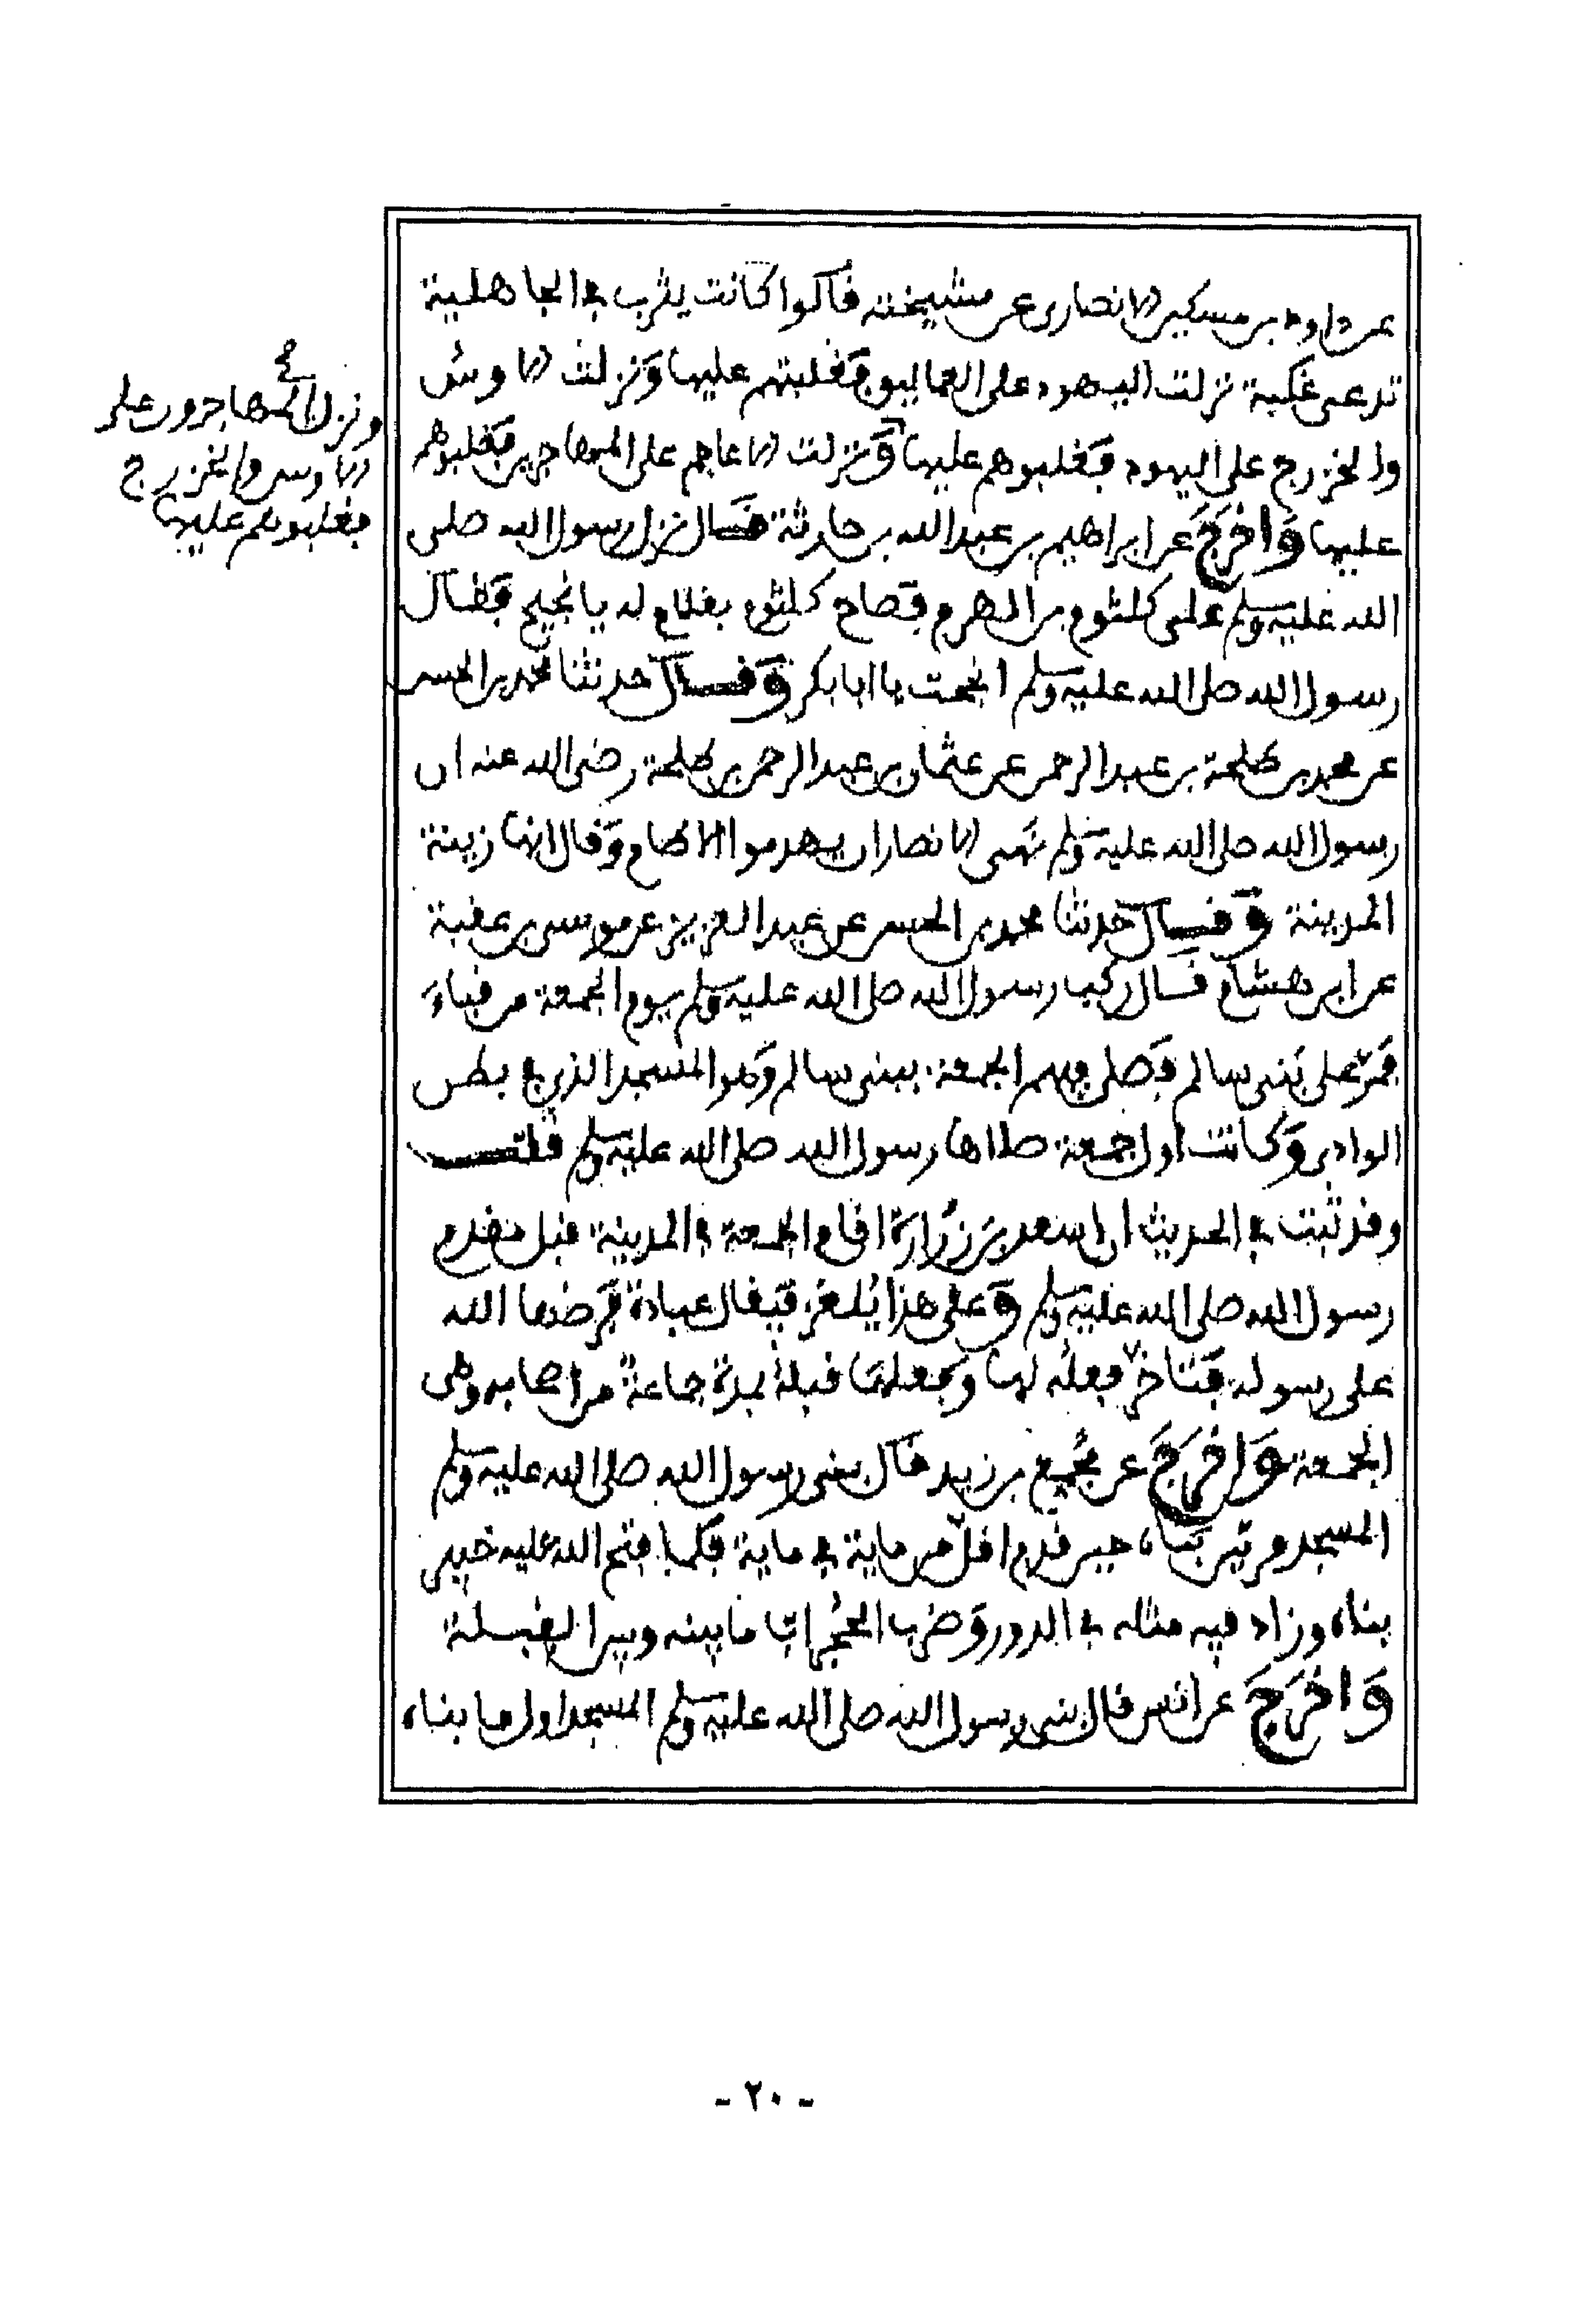 عن داود بن مسكين الانصاري عن مشيخته قالوا كانت يثرب في الجاهلية
تدعى غلبة نزلت اليهود على العماليق فغلبتهم عليها ونزلت الاوس
والخزرج على اليهود فغلبوهم عليها ونزلت الاعاجم على المهاجرين فغلبوهم
عليها واخرج عن ابراهيم بن عبد الله بن حارثة قال نزل رسول الله صلى
الله عليه وسلم على كلثوم بن الهرم فصاح كلثوم بغلام له يا نجيح فقال
رسول الله صلى الله عليه وسلم انجحت يا ابا بكر وقال حدثنا محمد بن الحسن
عن محمد بن طلحة بن عبد الرحمن عن عثمان بن عبد الرحمن بن طلحة رضي الله عنه ان
رسول الله صلى الله عليه وسلم نهى الانصار ان يهدموا الاطام وقال انها زينة
المدينة وقال حدثنا محمد بن الحسن عن عبد العزيز عن موسى بن عقبة
عن ابن هشام قال ركب رسول الله صلى الله عليه وسلم يوم الجمعة من قباء
فمر على بني سالم فصلى فيهم الجمعة ببني سالم وهو المسجد الذي في بطن
الوادي وكانت اول جمعة صلاها رسول الله صلى الله عليه وسلم قلت
وقد ثبت في الحديث ان اسعد بن زرارة اقام الجمعة في المدينة قبل مقدم
رسول الله صلى الله عليه وسلم وعلى هذا يلغز فيقال عبادة فرضها الله
على رسوله فتاخر فعله لها وبجعلها قبله بمدة جماعة من اصحابه وهي
الجمعة واخرج عن مجمع بن زيد قال بنى رسول الله صلى الله عليه وسلم
المسجد مرتين بناه حين قدم اقل من ماية في ماية فلما فتح الله عليه خيبر
بناه وزاد فيه مثله في الدور وضرب الحجرات ما بينه وبين القبلة
واخرج عن انس قال بنى رسول الله صلى الله عليه وسلم المسجد اول ما بناه
ونزل المهاجرون على
الاوس والخزرج
فغلبوهم عليها
- ٢٠ -